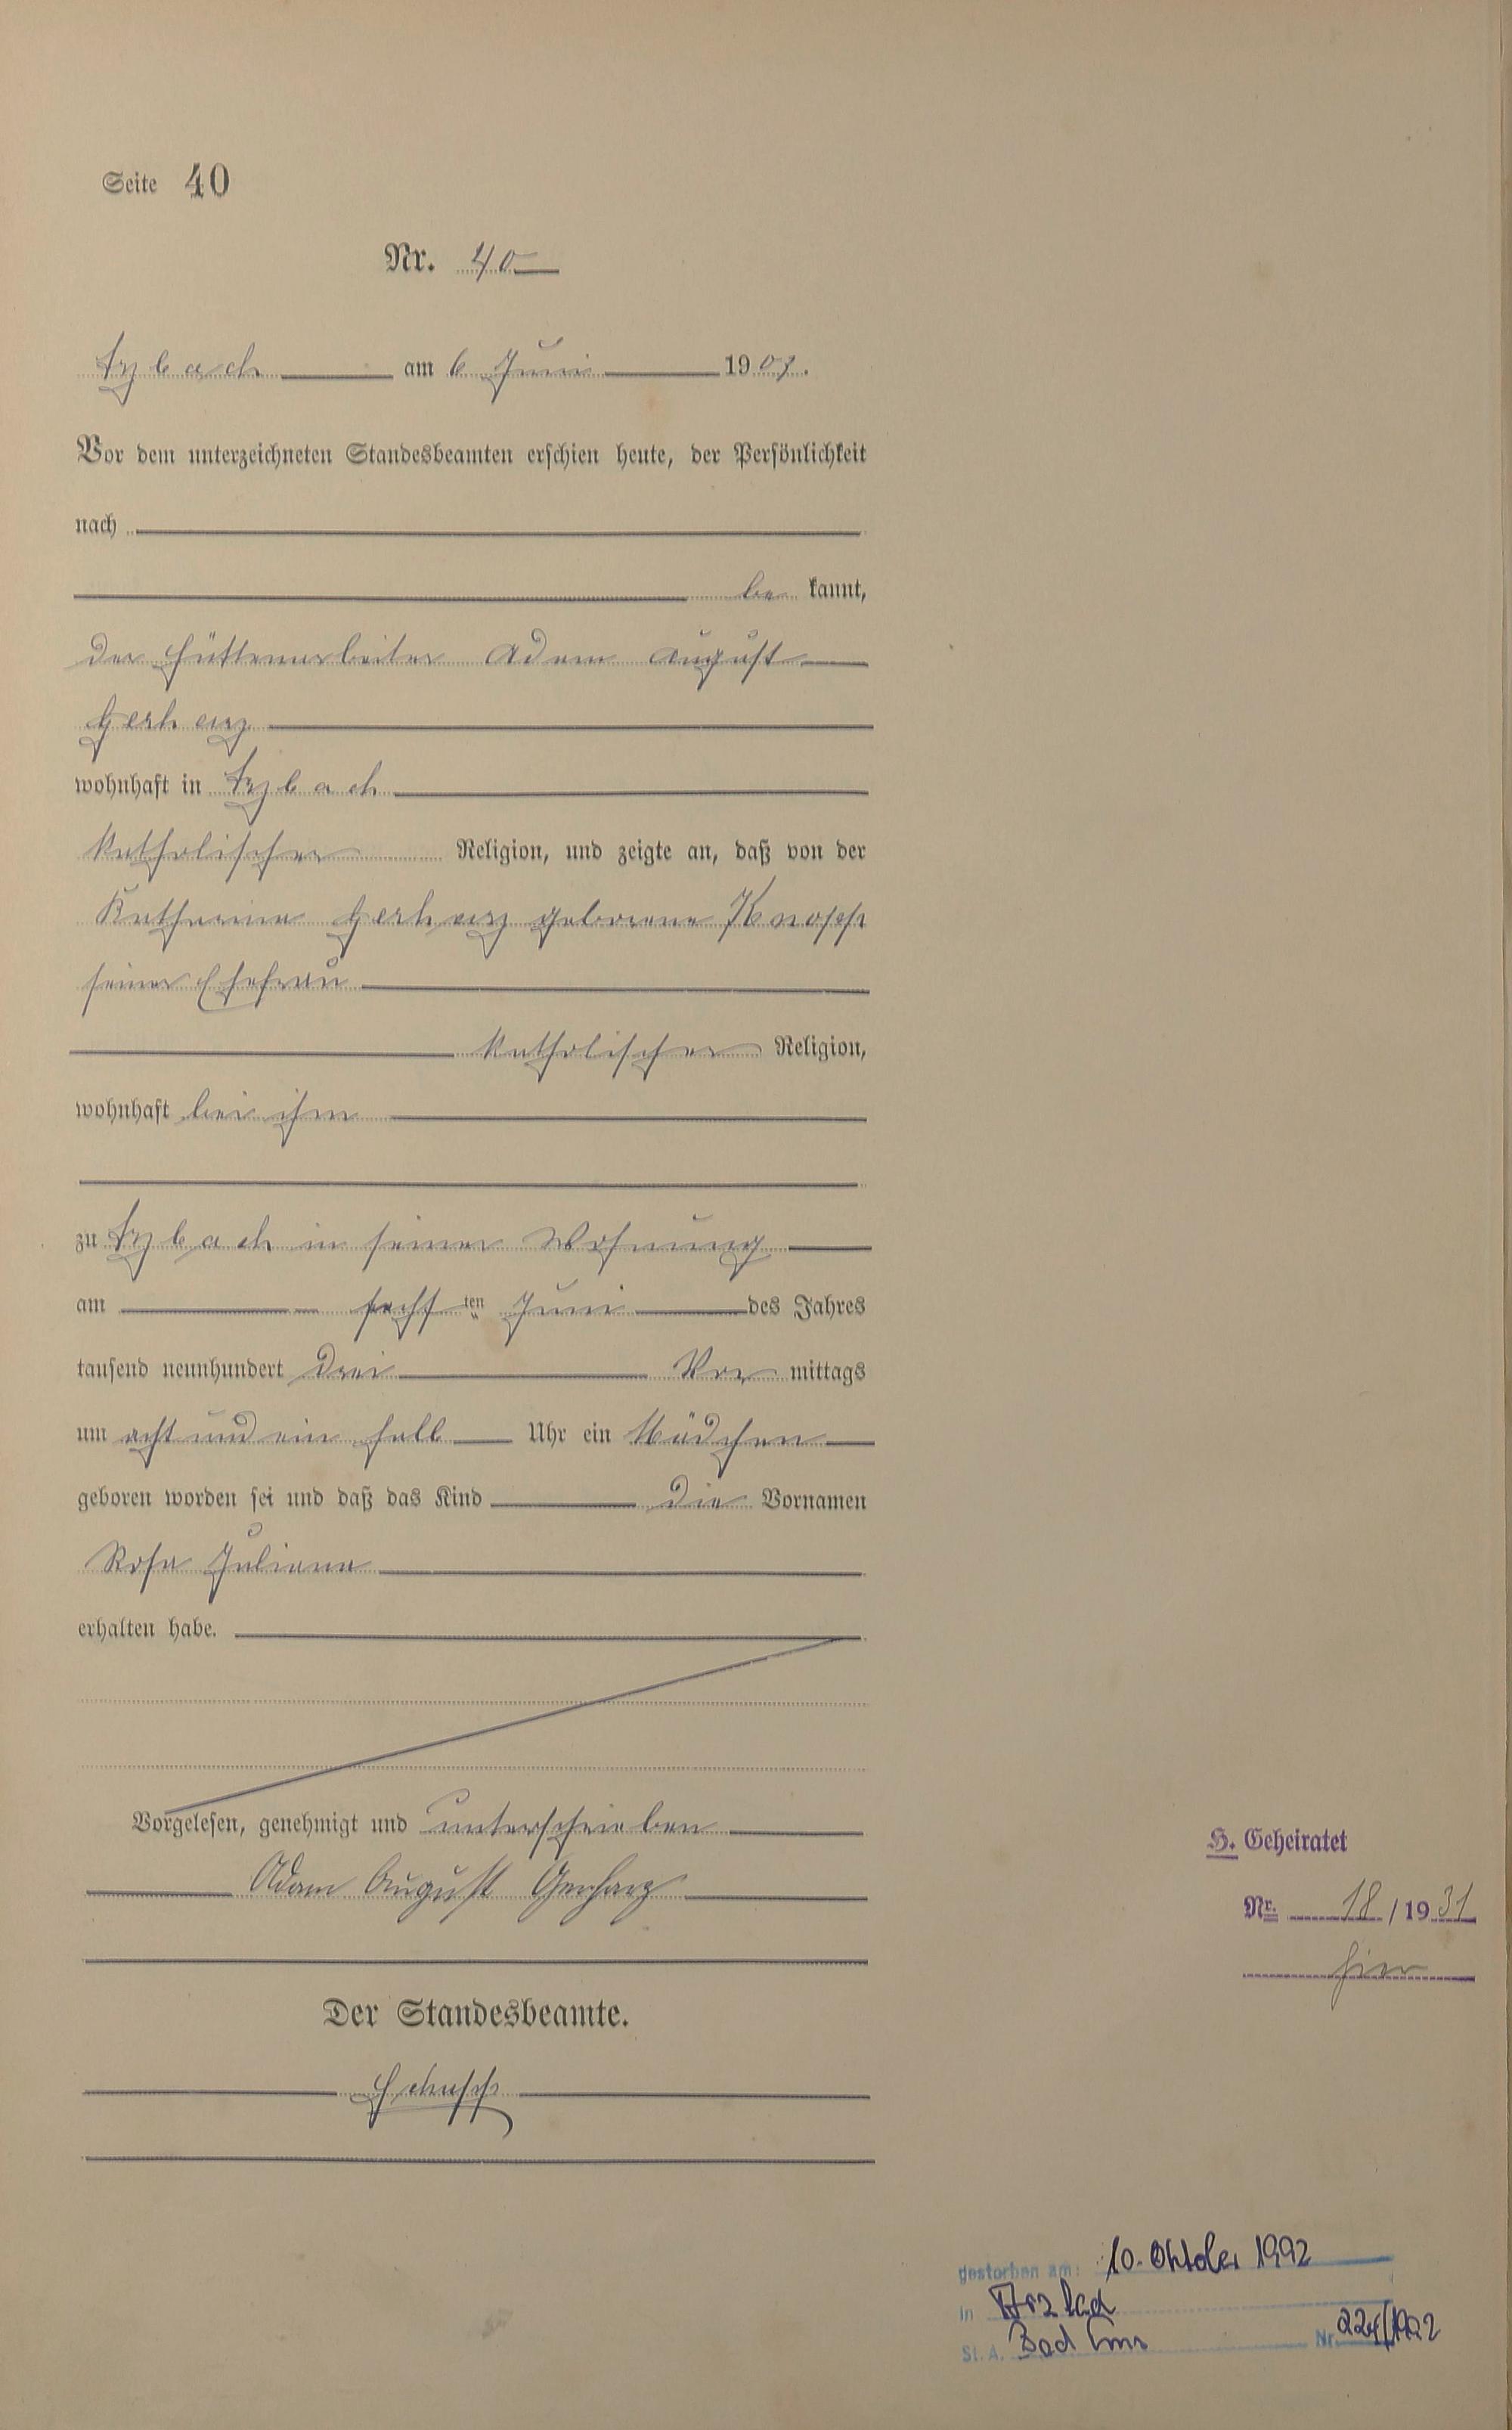 Seite 40
Nr. 40
Arzbach am 6 Juni 1903.
Vor dem unterzeichneten Standesbeamten erschien heute, der Persönlichkeit
nach
be kannt,
der Hüttenarbeiter Adam August
Gerharz
wohnhaft in Arzbach
katholischer Religion, und zeigte an, daß von der
Katharina Gerharz geborene Knopp
seiner Ehefrau
katholischer Religion,
wohnhaft bei ihm
zu Arzbach in seiner Wohnung
am sechsten Juni des Jahres
tausend neunhundert drei Vor mittags
um acht und ein halb Uhr ein Mädchen
geboren worden sei und daß das Kind die Vornamen
Rosa Juliana
erhalten habe.
Vorgelesen, genehmigt und unterschrieben
Adam August Gerharz
Der Standesbeamte.
Schupp
H. Geheiratet
Nr. 18/1931
hier
gestorben am: 10. Oktober 1992
in Arzbach
St. A. Bad Ems Nr.